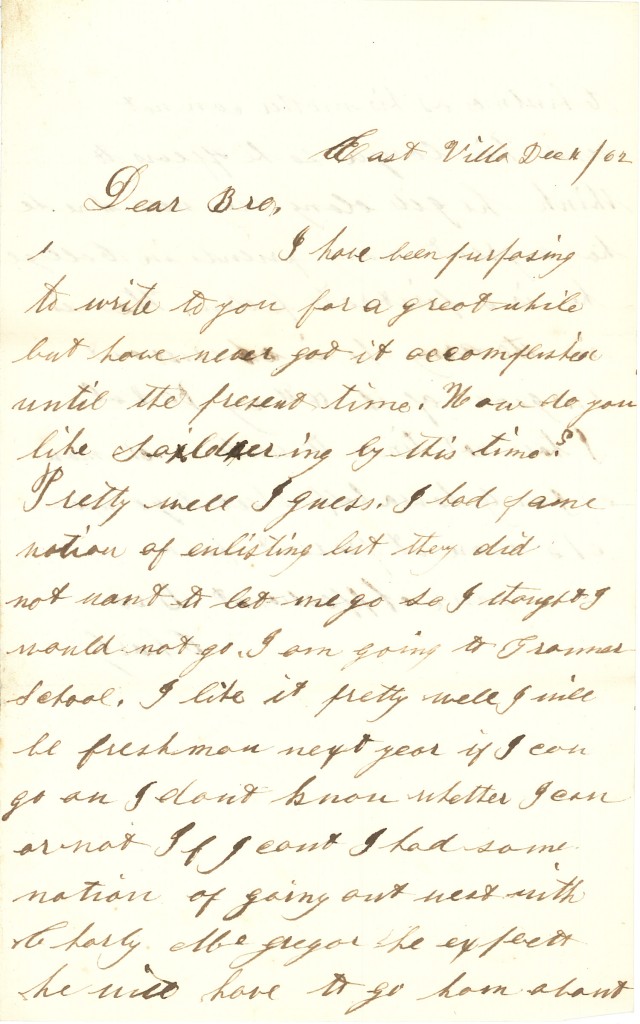 East Villa Dec 11/62
Dear Bro,
I have been purposing
to write to you for a great while
but have never got it accomplished
until the present time. How do you
like Soildiering by this time?
Pretty well I guess. I had some
notion of enlisting but they did
not want to let me go so I thought I
would not go. I am going to Grammar
School. I like it pretty well I will
be freshman next year if I can
go on I dont know whether I can
or not If I cant I had some
notion of going out west with
Charly Mc gregor he expects
he will have to go hom about